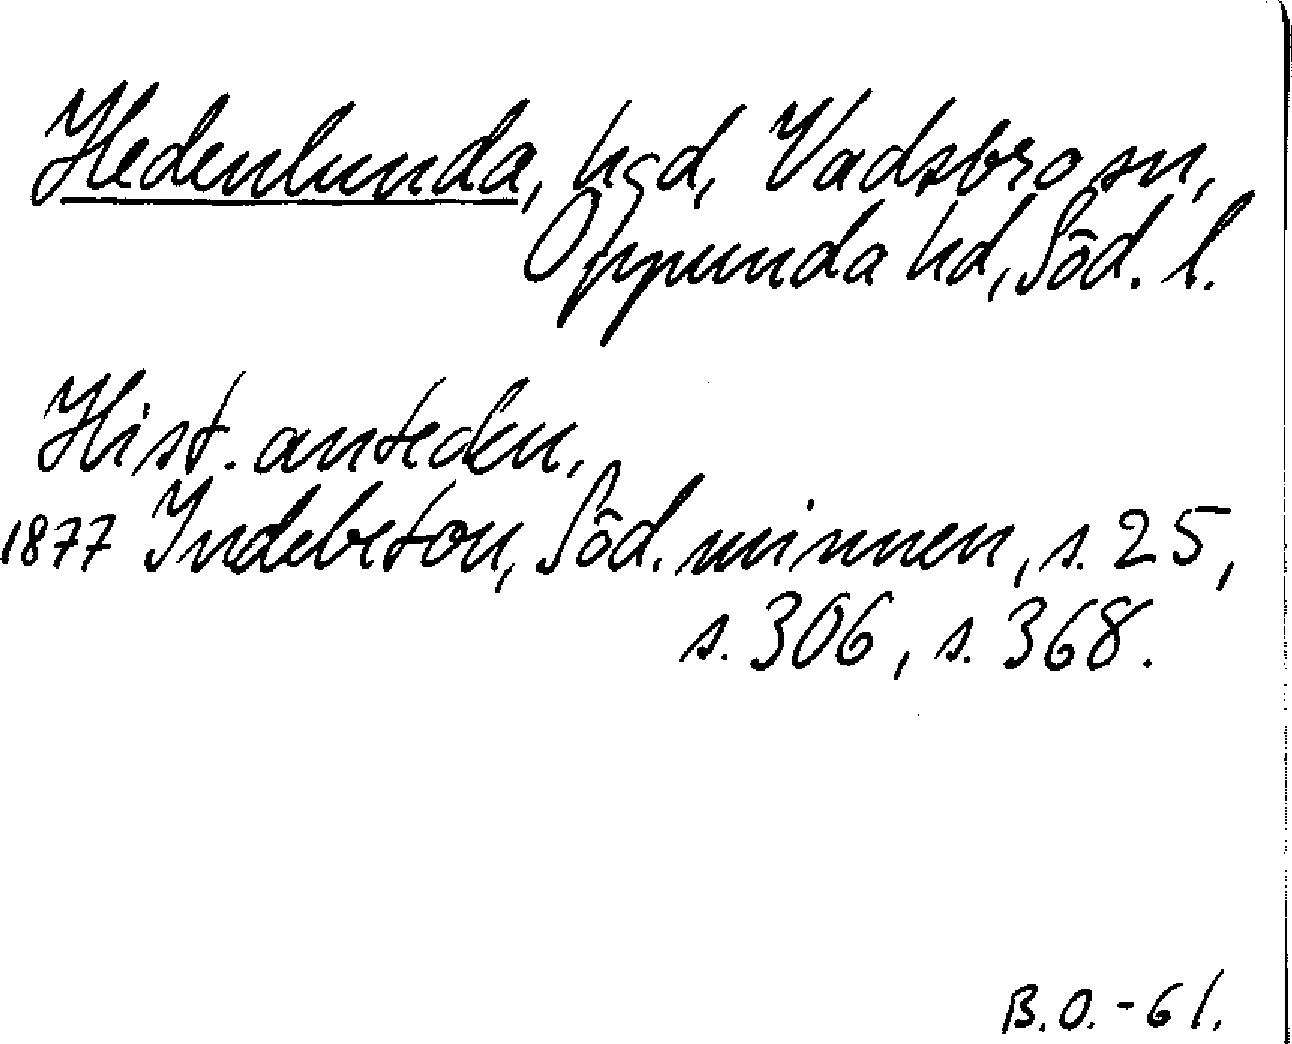 Hedenlunda, hgd, Vadsbro sn,
Oppunda hd, Söd. l.
Hist. anteckn.
1877 Indebetou, Söd. minnen, s. 25,
s. 306, s. 368.
B.O. - 61.